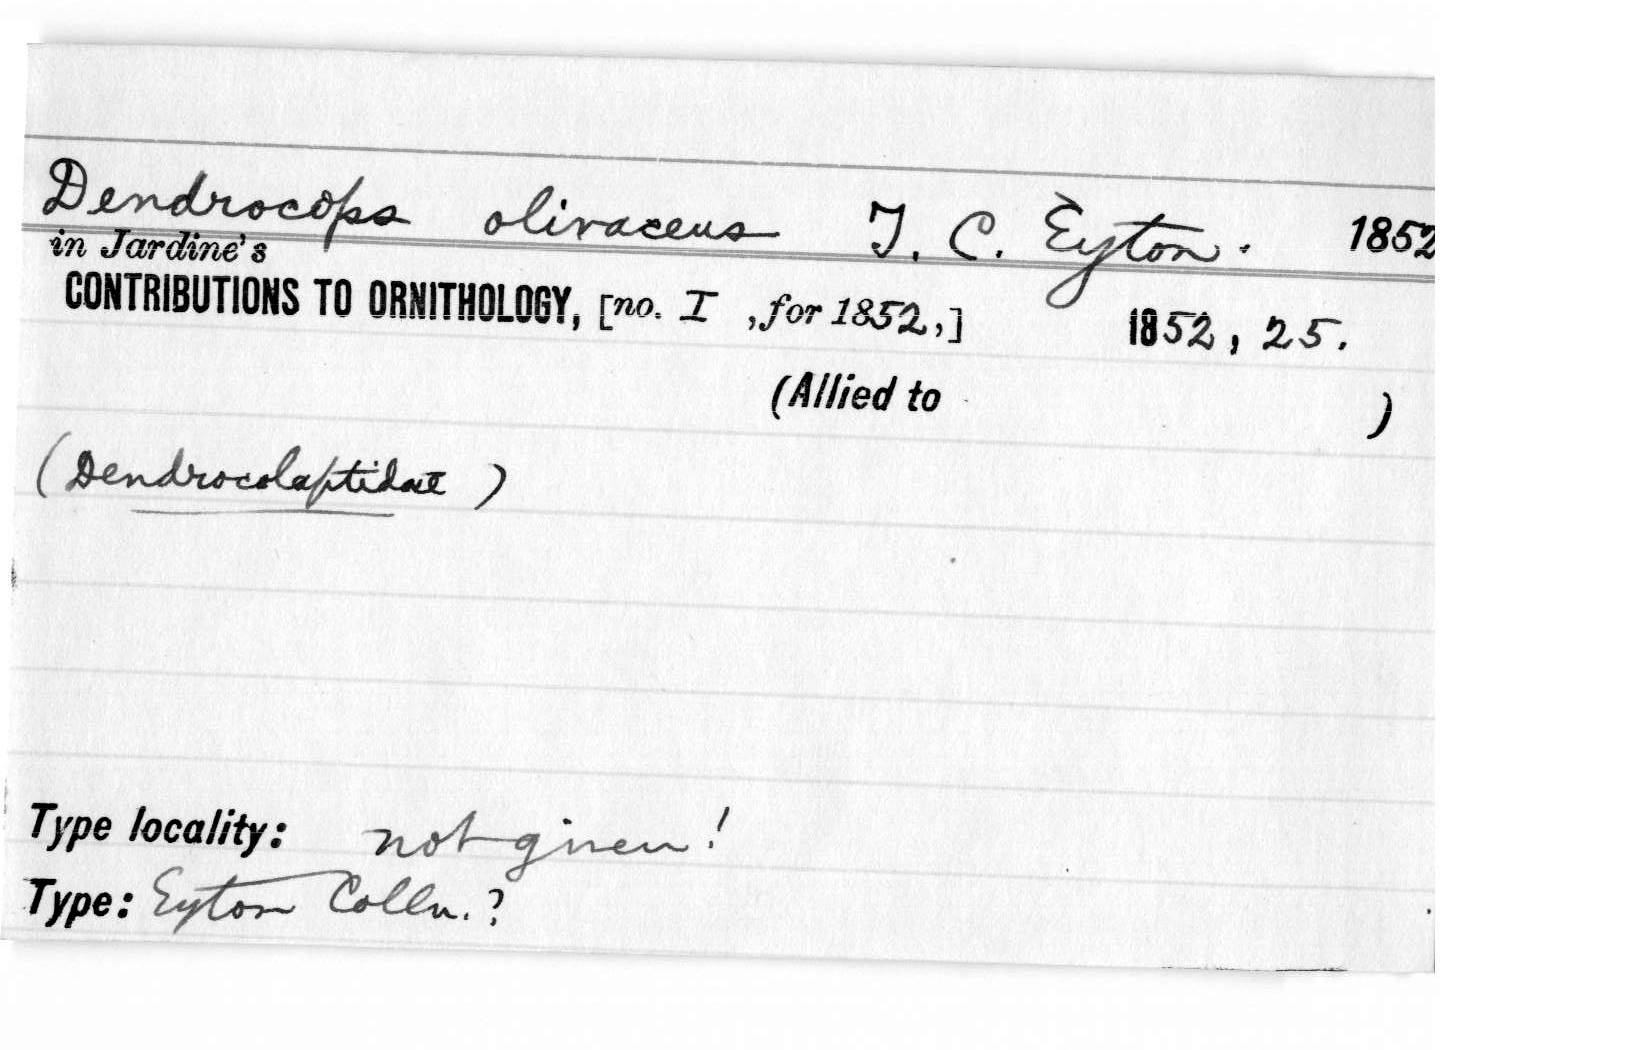 Dendrocops olivaceus T. C. Eyton. 1852
in Jardine's
CONTRIBUTIONS TO ORNITHOLOGY, [no. I , for 1852,] 1852, 25.
(Allied to )
(Dendrocolaptidae)
Type locality: not given!
Type: Eyton Colln.?